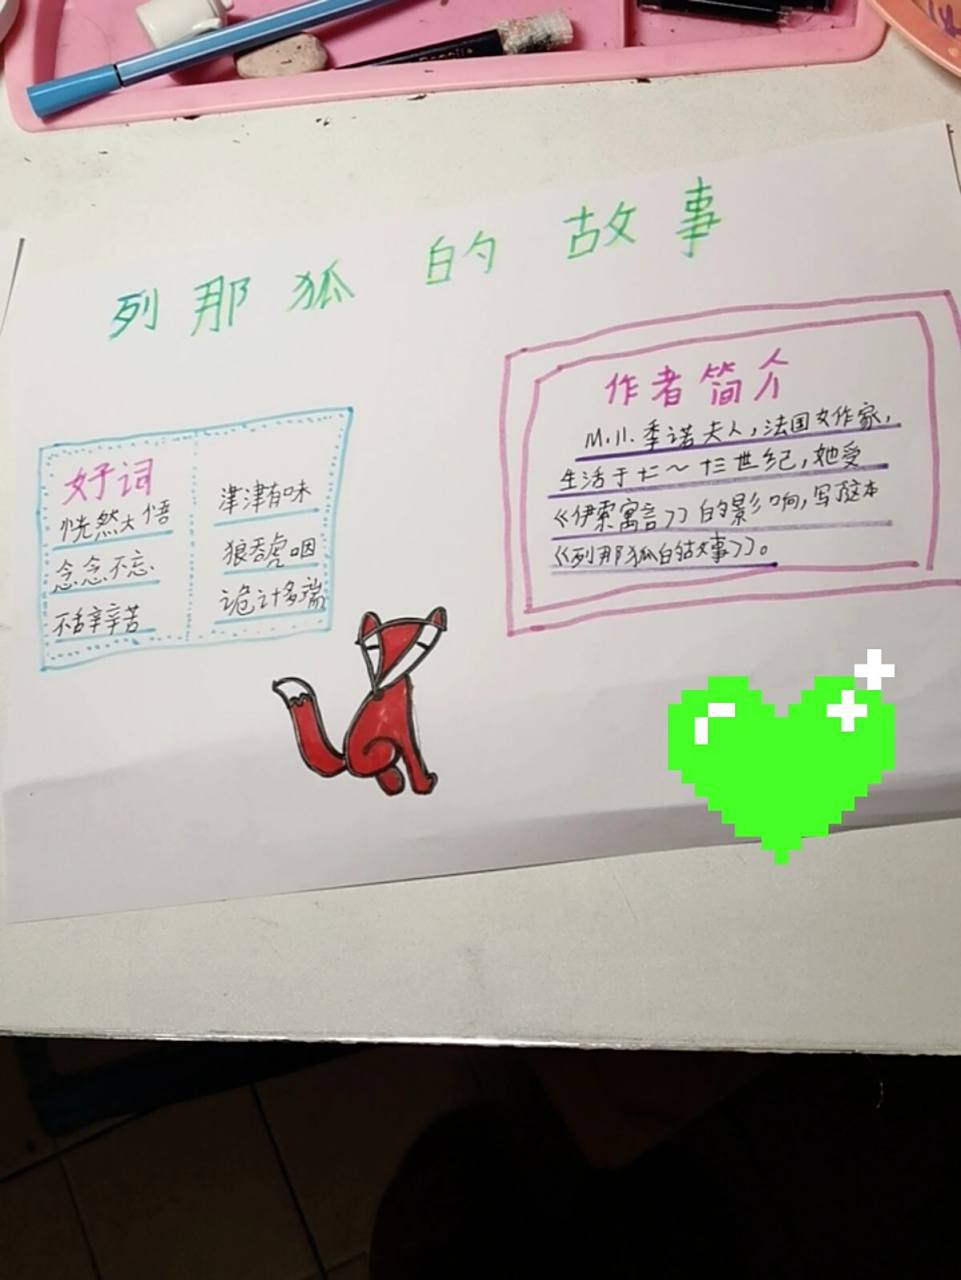 列那狐的故事
好词
恍然大悟
念念不忘
不辞辛苦
津津有味
狼吞虎咽
诡计多端
作者简介
M.H.季诺夫人,法国女作家,
生活于十二~十三世纪,她受
《伊索寓言》的影响,写了这本
《列那狐的故事》。